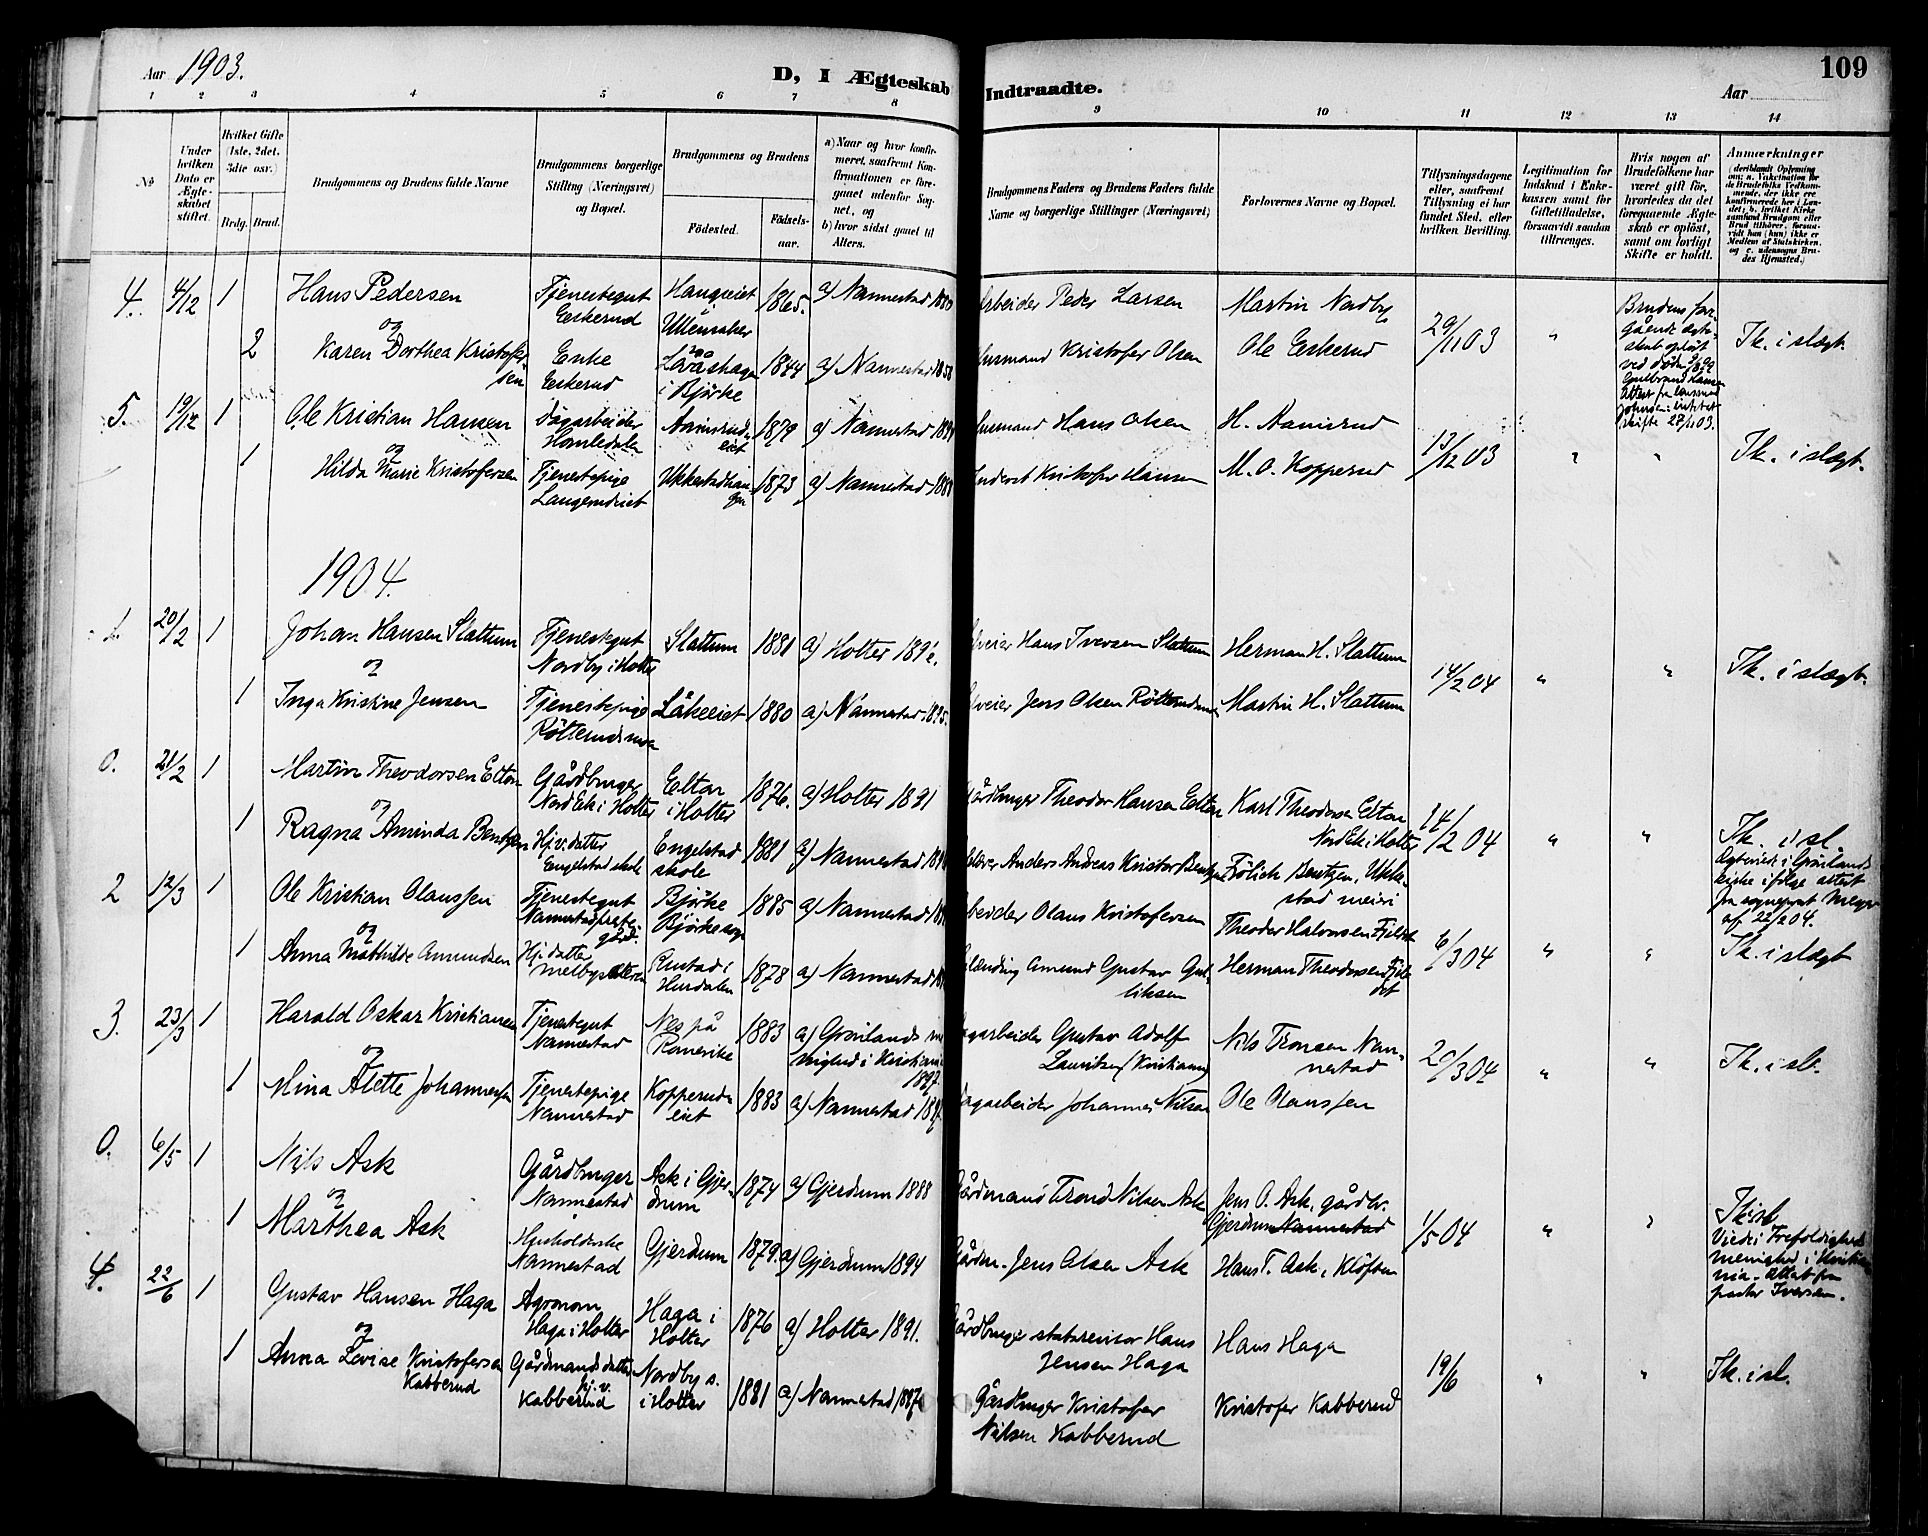 Aar 1903.
D, I Ægteskab Indtraadte.
109
Aar
1 2 3 4 5 6 7 8 9 10 11 12 13 14
No
Under hvilken Dato er Ægteskabet stiftet.
Hvilket Gifte (1ste, 2det, 3die osv.)
Brdg. Brud.
Brudgommens og Brudens fulde Navne
Brudgommens borgerlige Stilling (Næringsvei) og Bopæl.
Brudgommens og Brudens
Fødested.
Fødselsaar.
a) Naar og hvor konfirmeret, saafremt Konfirmationen er foregaaet udenfor Sognet, og
b) hvor sidst gaaet til Alters.
Brudgommens Faders og Brudens Faders fulde Navne og borgerlige Stillinger (Næringsvei)
Forlovernes Navne og Bopæl.
Tillysningsdagene eller, saafremt Tillysning ei har fundet Sted, efter hvilken Bevilling.
Legitimation for Indskud i Enkekassen samt for Giftetilladelse, forsaavidt saadan tiltrænges.
Hvis nogen af Brudefolkene har været gift før, hvorledes da det foregaaende Ægteskab er opløst, samt om lovligt Skifte er holdt.
Anmærkninger
4. 4/12 1 Hans Pedersen Tjenestegut Eskerud Haugeiet Ullensaker 1865. a) Nannestad 1880 Arbeider Peder Larsen Martin Nordby 29/11 03 " Tk. i slægt.
og
2 Karen Dorthea Kristofersen Enke Eskerud i Bjørke 1844 a) Nannestad 1858 Husmand Kristofer Olsen Ole Eskerud
Brudens foregående ægteskab opløst ved døden
skifte 28/11 03.
5. 19/12 1 Ole Kristian Hansen Dagarbeider Aamrudeiet 1879 a) Nannestad Husmand Hans Olsen H. Aamrud 13/12 03 " " Tk. i slægt.
og
1 Hilda Marie Kristofersen Tjenestepige Ukkestadhaugen 1873 a) Nannestad 1888 Inderst Kristofer Hansen M. O. Kopperud
1904.
1 20/2 1 Johan Hansen Slattum Tjenestegut Nordby i Holter Slattum 1881 a) Holter Selveier Hans Iversen Slattum Herman H. Slattum 14/2 04 " " Tk. i slægt.
og
1 Inga Kristine Jensen Tjenestepige Røtterudmoen Låkeeiet 1880 a) Nannestad 1895. Selveier Jens Olsen Røtterudmoen Martin H. Slattum
0. 21/2 1 Martin Theodorsen Elton Gårdbruger Nord Ek i Holter Eltor i Holter 1876. a) Holter 1891 Gårdbruger Theodor Hansen Elton Karl Theodorsen Elton Nord Ek i Holter 14/2 04 " " Tk. i sl.
og
1 Ragna Aminda Bentzen Hj.v. datter Engelstad skole Engelstad skole 1881 a) Nannestad Lærer Anders Andreas Kristor Bentzen Frölich Bentzen, Ukkestad meieri
Ægteviet i Grønlands kirke ifølge attest fra sogneprest Meyer af 22/2 04.
2 12/3 1 Ole Kristian Olaussen Tjenestegut Nannestad prestegård. Bjørke Bjørke sogn 1885 a) Nannestad Arbeider Olaus Kristofersen Theodor Halvorsen Fjeldet 6/3 04 " " Tk. i slægt
og
1 Anna Mathilde Amundsen Hj. datter Melbysæteren Rustad i Hurdalen 1878 a) Nannestad Amund Gustav Gulliksen Herman Theodorsen Fjeldet
3. 23/3 1 Harald Oskar Kristiansen Tjenestegut Nannestad Nes på Romerike 1883 a) Grønlands menighed i Kristiania 1897. Dagarbeider Gustav Adolf Lauritsen (Kristiania) Nils Tronsen Nannestad 20/3 04 " " Tk. i sl.
og
1 Mina Alette Johannessen Tjenestepige Nannestad Kopperudeiet 1883 a) Nannestad Dagarbeider Johannes Nilsen Ole Olaussen
0. 6/5 1 Nils Ask Gårdbruger Nannestad Ask i Gjerdrum 1874 a) Gjerdrum 1888 Gårdmand Trond Nilsen Ask Jens O. Ask, gårdbr. Gjerdrum Nannestad 1/5 04 " " Tk. i sl.
og
1 Marthea Ask Husholderske Nannestad Gjerdrum 1879. a) Gjerdrum 1894 Gårdm. Jens Olsen Ask Hans T. Ask, Kløften
Viede i Trefoldigheds menighed i Kristiania. Attest fra pastor Iversen.
4. 22/6 1 Gustav Hansen Haga Agronom Haga i Holter Haga i Holter 1876 a) Holter 1891. Gårdbruger statsrevisor Hans Jensen Haga Hans Haga 19/6 " " Tk. i sl.
og
1 Anna Lovise Kristofersen Kabberud Gårdmandsdatter hj.v. Kabberud Nordby s. i Holter 1881 a) Nannestad Gårdbruger Kristofer Nilsen Kabberud Kristofer Kabberud